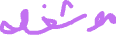 مو شغله